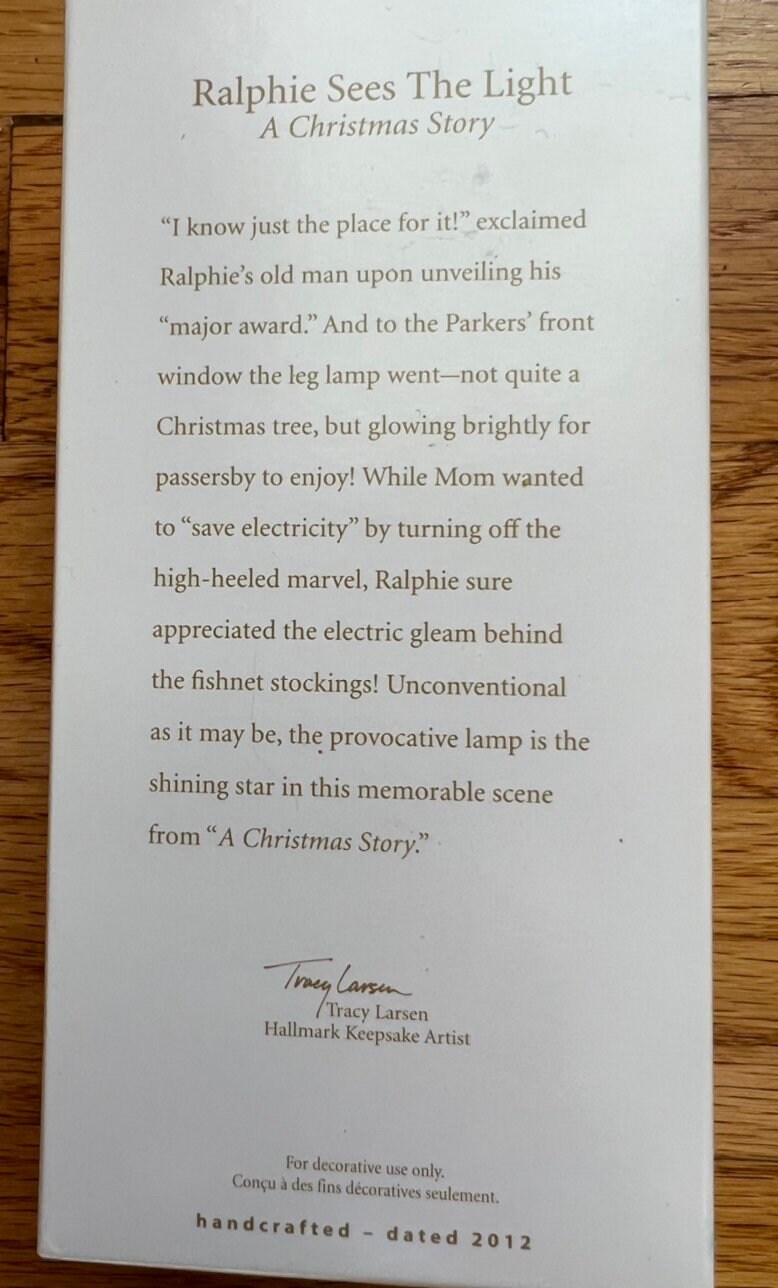 Ralphie Sees The Light
A Christmas Story
“I know just the place for it!” exclaimed
Ralphie’s old man upon unveiling his
“major award.” And to the Parkers’ front
window the leg lamp went—not quite a
Christmas tree, but glowing brightly for
passersby to enjoy! While Mom wanted
to “save electricity” by turning off the
high-heeled marvel, Ralphie sure
appreciated the electric gleam behind
the fishnet stockings! Unconventional
as it may be, the provocative lamp is the
shining star in this memorable scene
from “A Christmas Story.”
Tracy Larsen
Tracy Larsen
Hallmark Keepsake Artist
For decorative use only.
Conçu à des fins décoratives seulement.
handcrafted – dated 2012